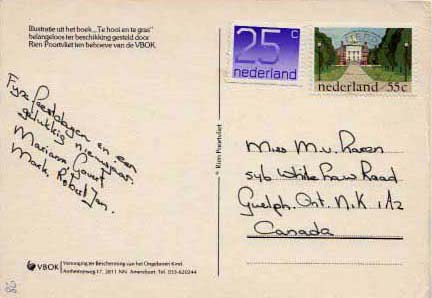 Illustratie uit het boek „Te hooi en te gras”
belangeloos ter beschikking gesteld door
Rien Poortvliet ten behoeve van de VBOK.
25 c
nederland
nederland 55c
Fijne feestdagen en een
gelukkig nieuwjaar.
Mariann Gerrit
Mark Robert Jan.
© Rien Poortvliet
Miss M.v. Haren
546 White Road
Guelph. Ont. N.1.K 1A2
Canada
VBOK Vereniging ter Bescherming van het Ongeboren Kind.
Arnhemseweg 17, 3811 NN Amersfoort. Tel. 033-620244